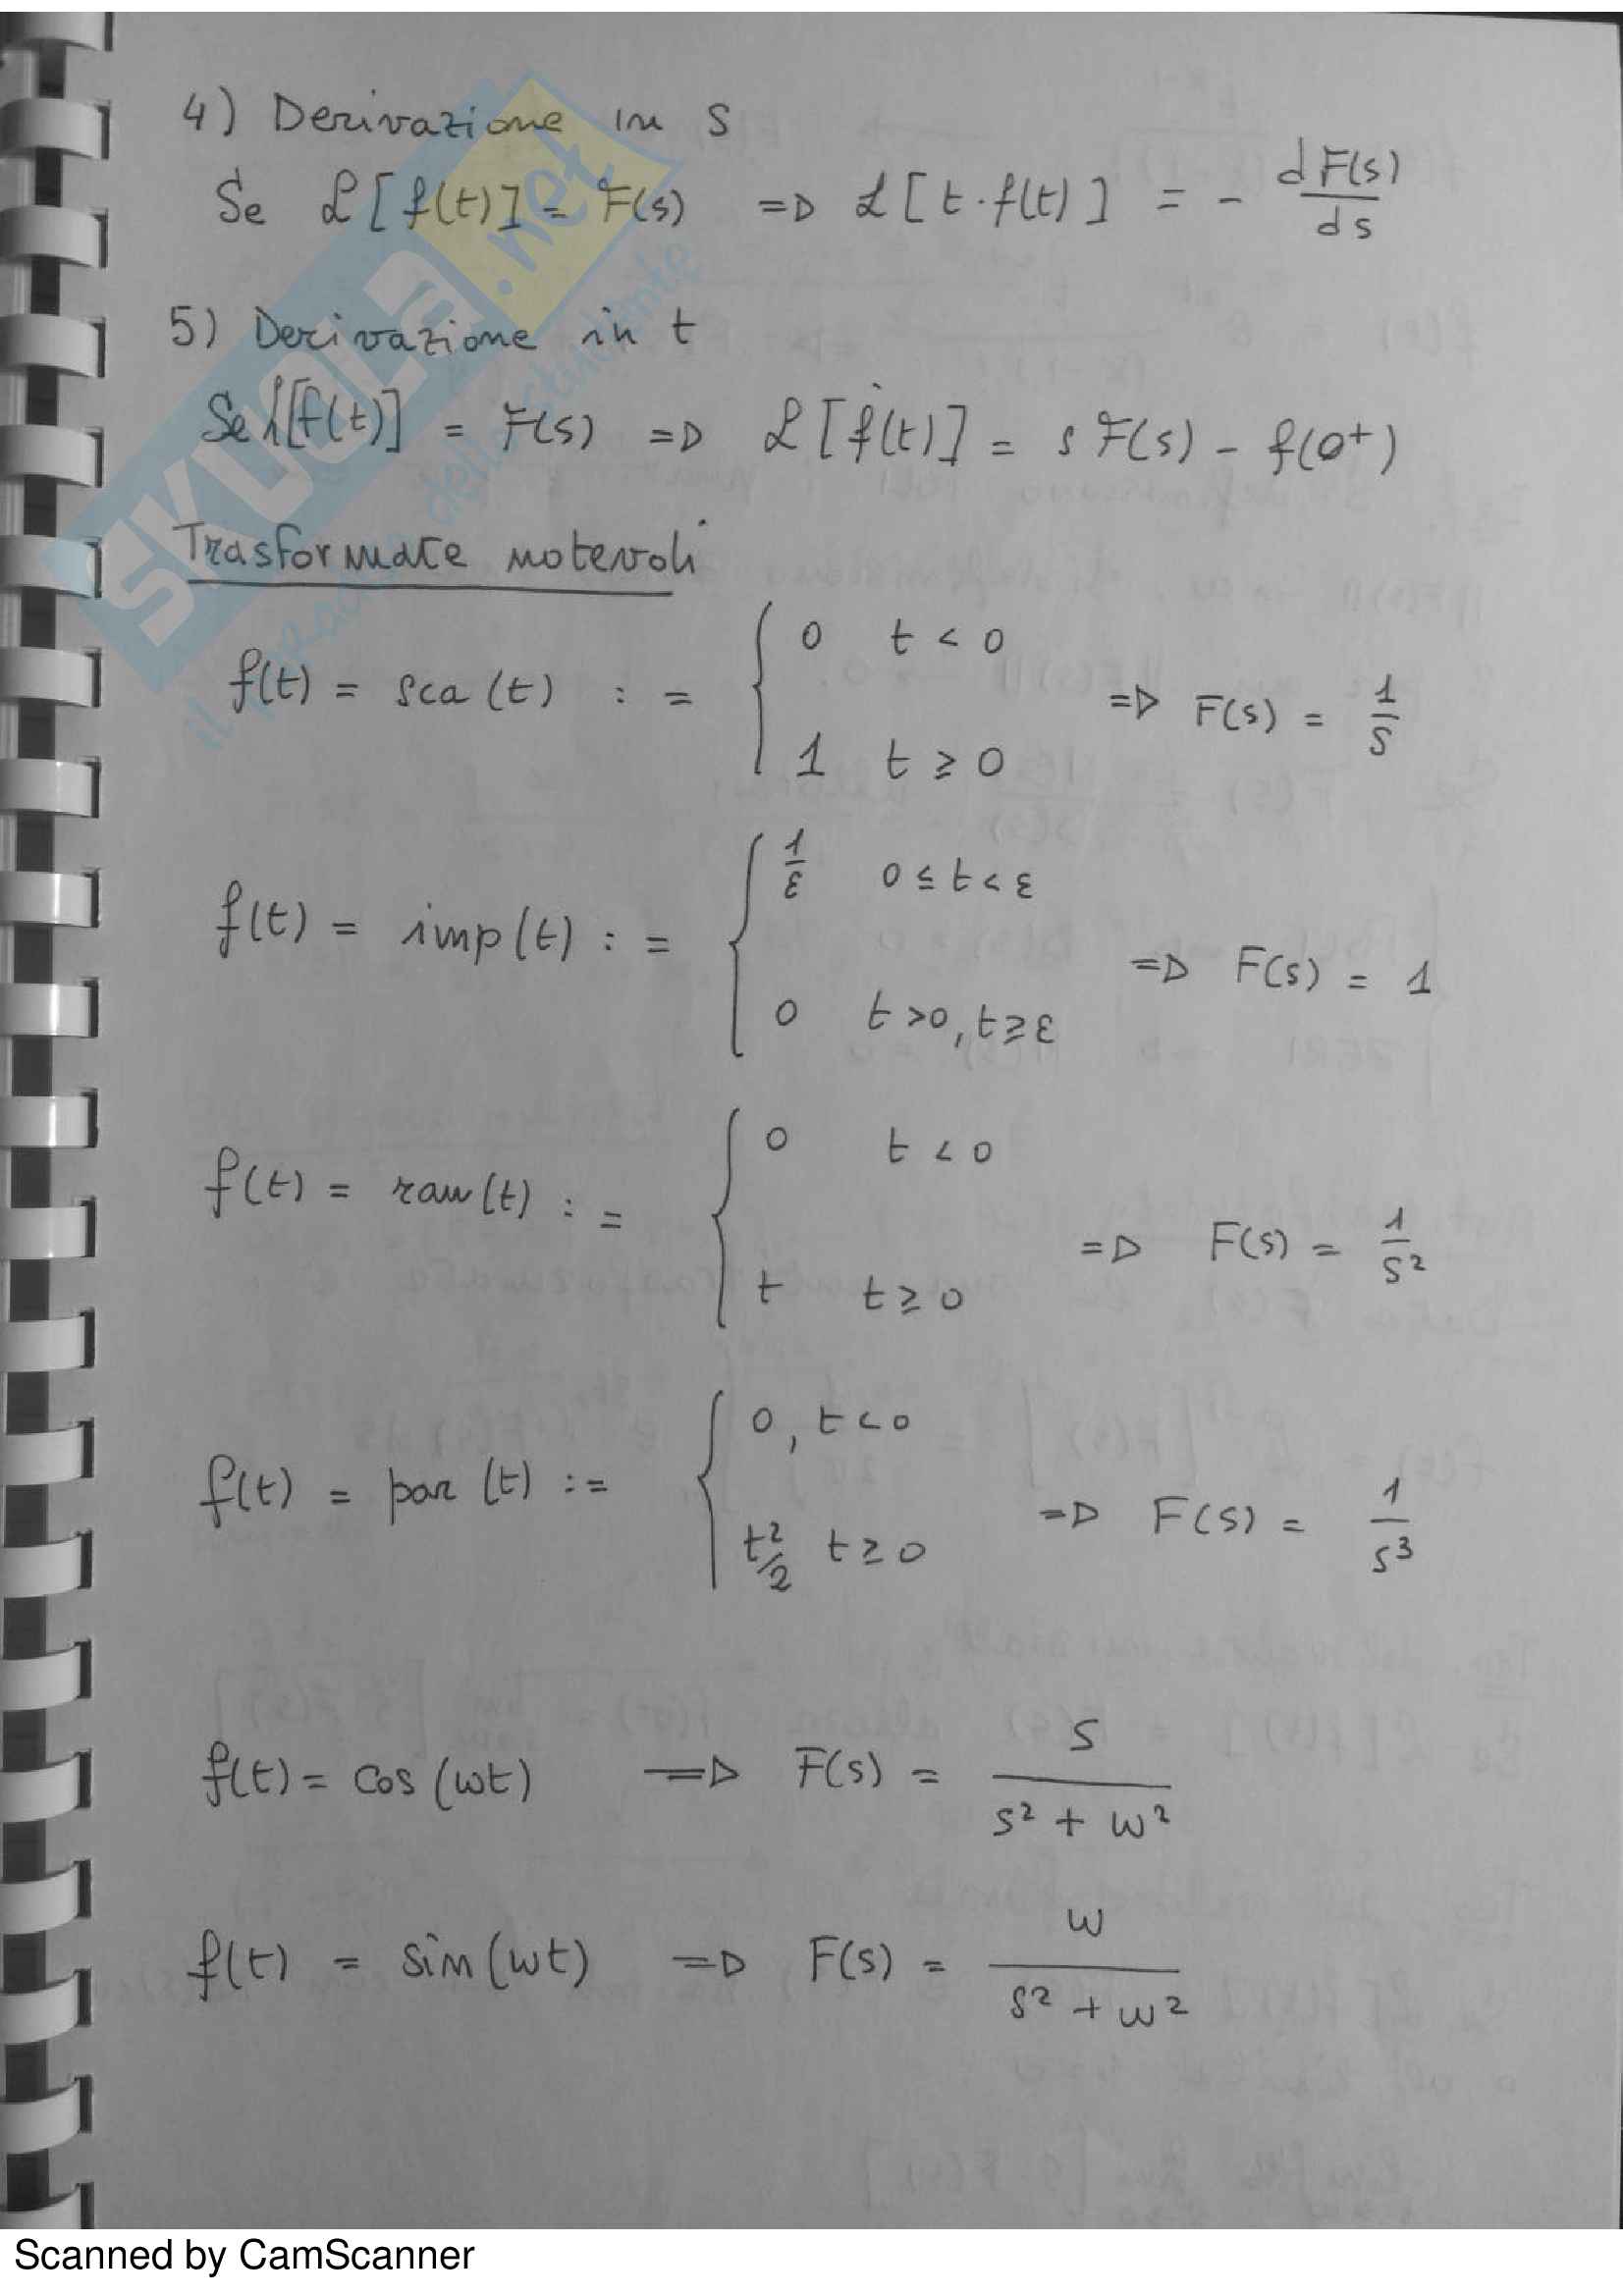 4) Derivazione in S
Se ℒ[f(t)] = F(s) => ℒ[t·f(t)] = - dF(s)/ds
5) Derivazione in t
Se ℒ[f(t)] = F(s) => ℒ[ḟ(t)] = s F(s) - f(0⁺)
Trasformate notevoli
f(t) = sca(t) := { 0 t < 0 ; 1 t ≥ 0 => F(s) = 1/s
f(t) = imp(t) := { 1/ε 0 ≤ t < ε ; 0 t > 0, t ≥ ε => F(s) = 1
f(t) = ram(t) := { 0 t < 0 ; t t ≥ 0 => F(s) = 1/s²
f(t) = par(t) := { 0, t < 0 ; t²/2 t ≥ 0 => F(s) = 1/s³
f(t) = cos(ωt) => F(s) = s/(s² + ω²)
f(t) = sin(ωt) => F(s) = ω/(s² + ω²)
SKUOLA.net
Scanned by CamScanner